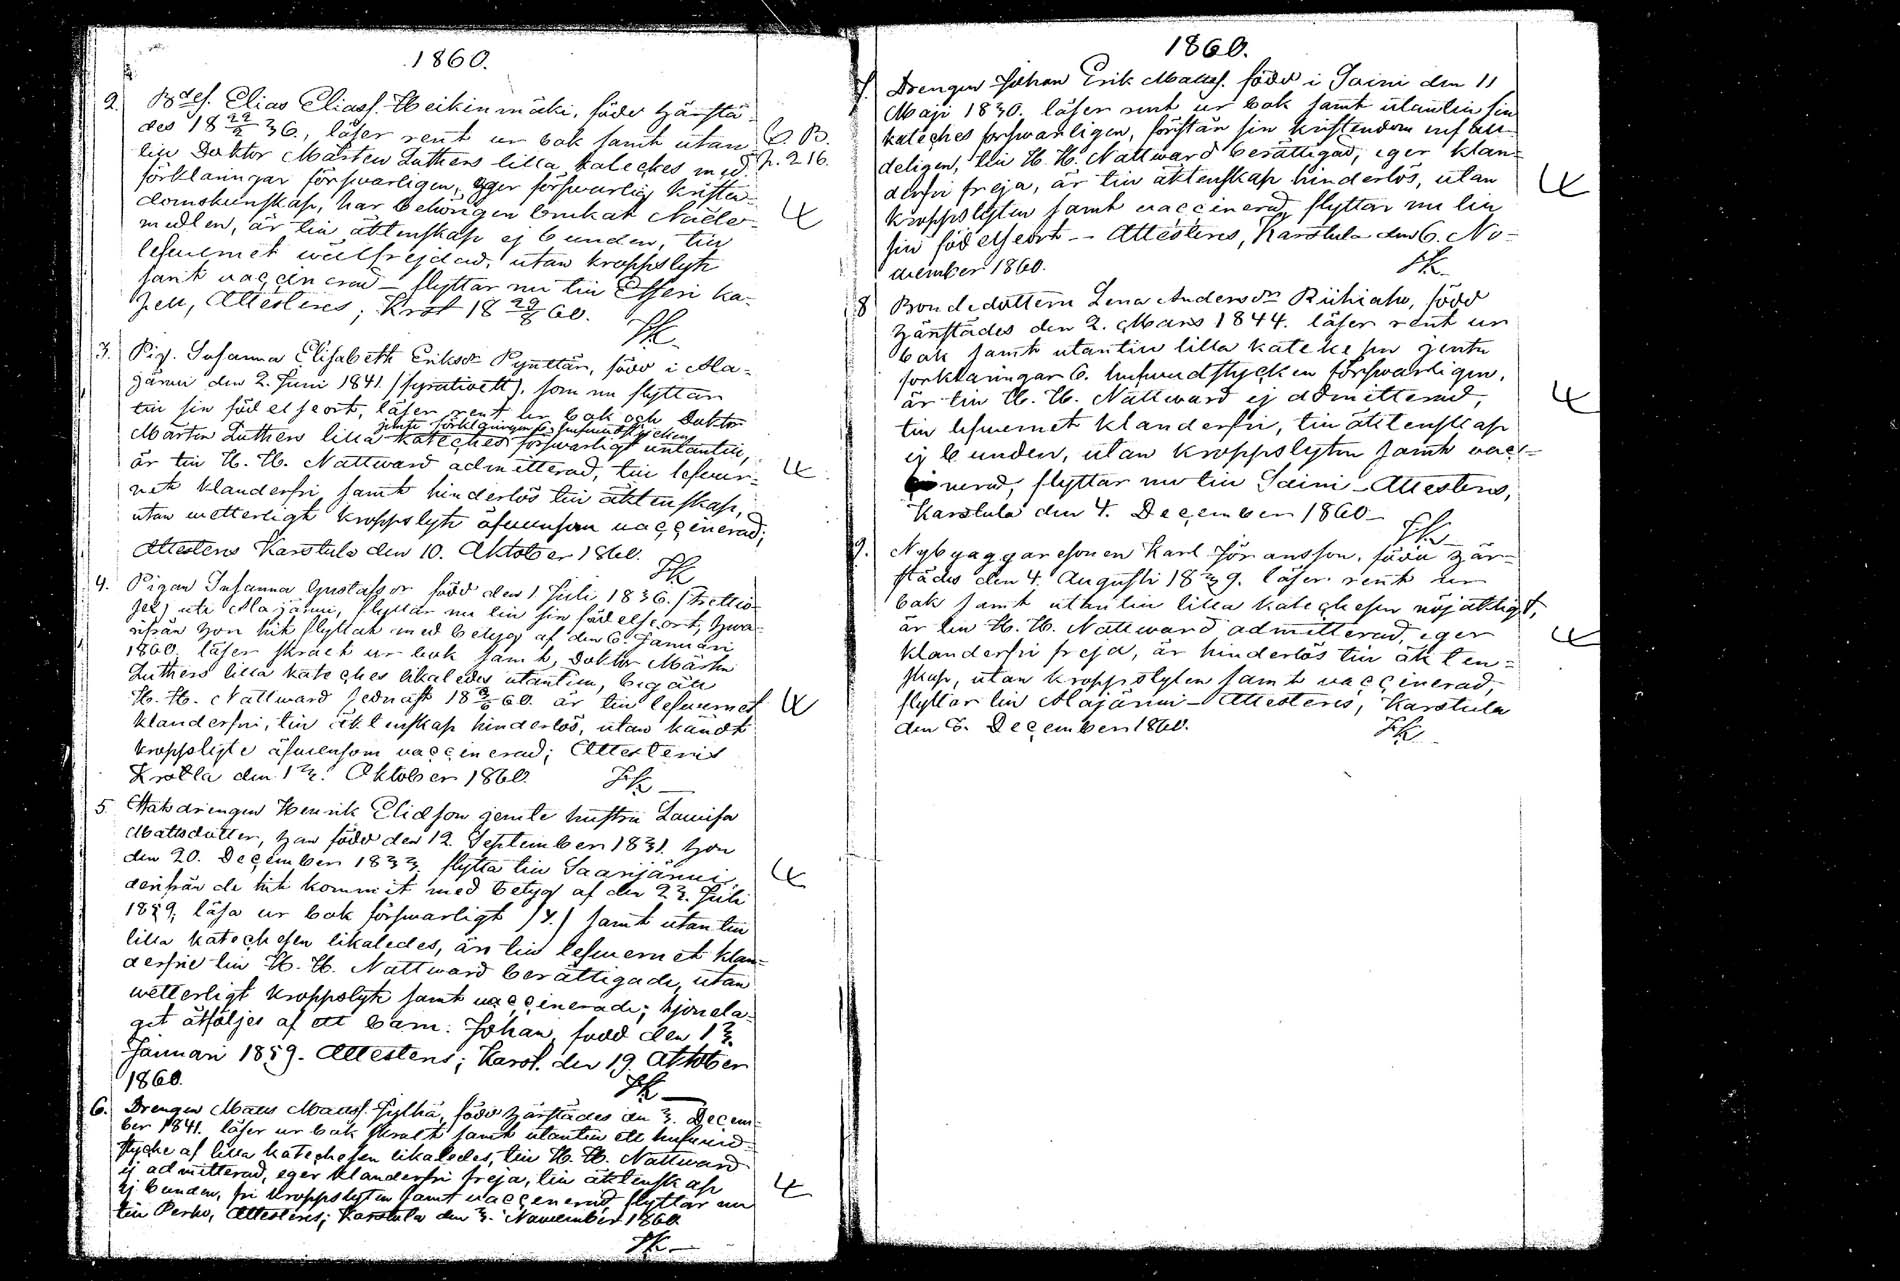 1860.
2. Bdes. Elias Eliass. Heikinmäki, född härstä-
des 18 22/2 36., läser rent ur bok samt utan
till Doktor Mårten Luthers lilla kateches med
C. B.
p. 216.
förklaringar försvarligen, eger försvarlig kristen-
domskunskap, har behörigen brukat Nåde-
medlen, är till äktenskap ej bunden, till
lefvernet wälfrejdad, utan kroppslyte
samt vaccinerad – flyttar nu till Etseri ka-
pell, Attesteres; Krst 18 29/8 60.
3. Pig. Susanna Elisabeth Eriksdr Pynttäri, född i Ala-
järvi den 2. Juni 1841. (fyratioett), som nu flyttar
till sin födelseort, läser rent ur bok och Doktor
jemte förklaringar 6. hufvudstycken
Mårten Luthers lilla kateches försvarligt utantill,
är till H. H. Nattward admitterad, till lefver-
net klanderfri samt hinderlös till äktenskap,
utan wetterligt kroppslyte äfvensom vaccinerad;
Attesteres Karstula den 10. Oktober 1860.
4. Pigan Susanna Gustafsdr född den 1. Juli 1836. (trettio-
sex) uti Alajärvi, flyttar nu till sin födelseort, hwa-
rifrån hon hit flyttat med betyg af den 6. Januari
1860. läser skralt ur bok samt Doktor Mårten
Luthers lilla kateches likaledes utantill, begått
H. H. Nattward sednast 18 3/6 60. är till lefvernet
klanderfri, till äktenskap hinderlös, utan kändt
kroppslyte äfvensom vaccinerad; Attesteris
Krstla den 13. Oktober 1860.
5. Statsdrengen Henrik Elidsson jemte hustru Lovisa
Mattsdotter, han född den 12. September 1831. hon
den 20. December 1833. flytta till Saarijärvi
derifrån de hit kommit med betyg af den 23. Juli
1859; läsa ur bok försvarligt samt utantill
lilla katechesen likaledes, äro till lefvernet klan-
derfrie till H. H. Nattward berättigade, utan
wetterligt kroppslyte samt vaccinerade; hjonela-
get åtföljes af ett barn: Johan, född den 13.
Januari 1859. Attesteres; Karst. den 19. Oktober
1860.
6. Drengen Matts Mattss. Jylhä, född härstädes den 3. Decem-
ber 1841. läser ur bok skralt samt utantill ett hufvud-
stycke af lilla katechesen likaledes, till H. H. Nattward
ej admitterad, eger klanderfri frejd, till äktenskap
ej bunden, fri kroppslyten samt vaccinerad, flyttar nu
till Perho, Attesteres; Karstula den 3. November 1860.
1860.
7. Drengen Johan Erik Mattss. född i Soini den 11
Maji 1830. läser rent ur bok samt utantill sin
kateches försvarligen, förstår sin kristendom nöjak-
deligen, till H. H. Nattward berättigad, eger klan-
derfri frejd, är till äktenskap hinderlös, utan
kroppslyten samt vaccinerad, flyttar nu till
sin födelseort – Attesteres, Karstula den 6. No-
vember 1860.
8. Bondedottern Lena Andersdr Riihiaho, född
härstädes den 2. Mars 1844. läser rent ur
bok samt utantill lilla katekesen jemte
förklaringar 6. hufvudstycken försvarligen,
är till H. H. Nattward ej admitterad,
till lefvernet klanderfri, till äktenskap
ej bunden, utan kroppslyten samt vacc-
inerad, flyttar nu till Soini – Attesteres,
Karstula den 4. December 1860 –
9. Nybyggaresonen Karl Jöransson, född här-
städes den 4. Augusti 1839. läser rent ur
bok samt utantill lilla katechesen nöjaktigt,
är till H. H. Nattward admitterad, eger
klanderfri frejd, är hinderlös till äkten-
skap, utan kroppslyten samt vaccinerad,
flyttar till Alajärvi – Attesteres, Karstula
den 6. December 1860.